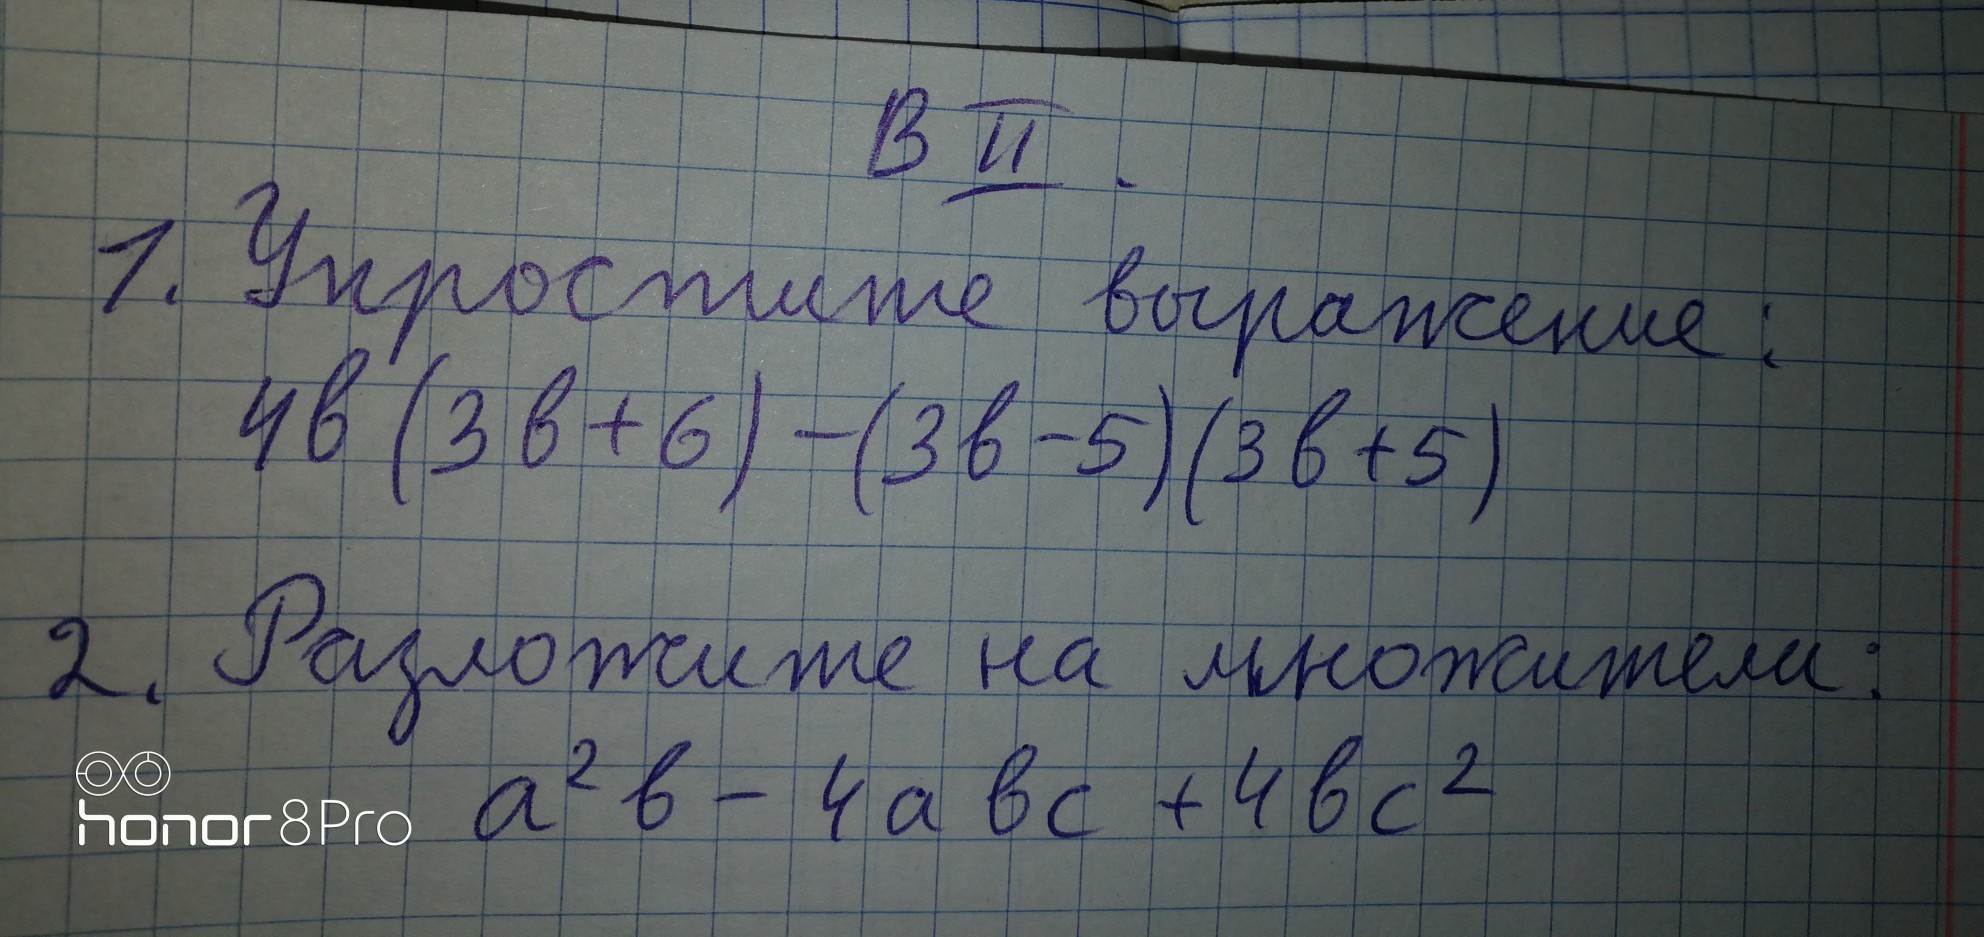 В II.
1. Упростите выражение:
4в(3в+6)-(3в-5)(3в+5)
2. Разложите на множители:
a²в-4aвc+4вc²
honor 8Pro